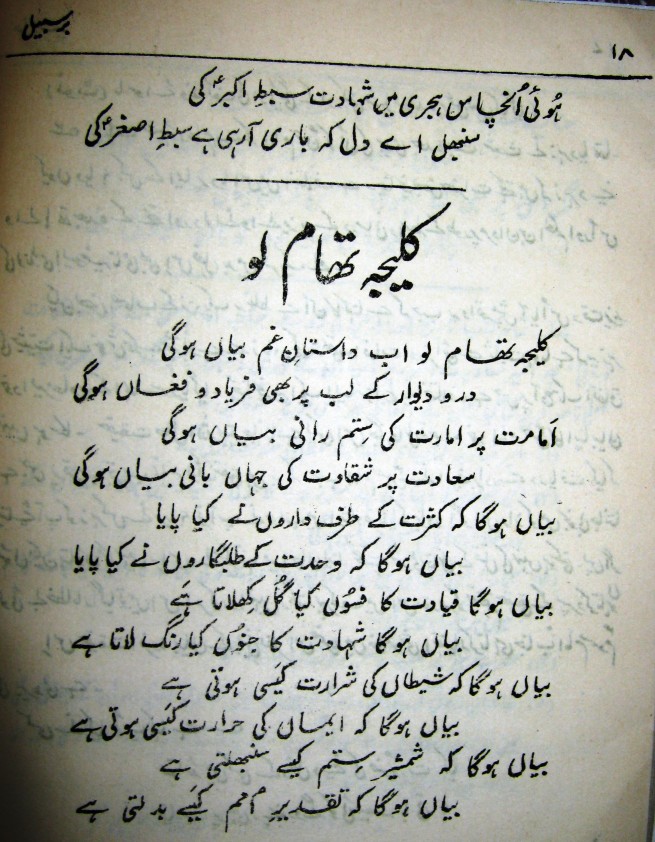 برسبیل
۱۸
ہُوئی اُنچاس ہجری میں شہادت سبطِ اکبرؑ کی
سنبھل اے دل کہ باری آرہی ہے سبطِ اصغرؑ کی
کلیجہ تھام لو
کلیجہ تھام لو اب داستانِ غم بیاں ہوگی
در و دیوار کے لب پر بھی فریاد و فغاں ہوگی
اَمامت پر امارت کی سِتم رانی بیاں ہوگی
سعادت پر شقاوت کی جہاں بانی بیاں ہوگی
بیاں ہوگا کہ کثرت کے طرف داروں نے کیا پایا
بیاں ہوگا کہ وحدت کے طلبگاروں نے کیا پایا
بیاں ہوگا قیادت کا فسُوں کیا گُل کھلاتا ہَے
بیاں ہوگا شہادت کا جنوُں کیا رنگ لاتا ہے
بیاں ہوگا کہ شیطاں کی شرارت کیَسی ہوتی ہے
بیاں ہوگا کہ ایماں کی حرارت کیَسی ہوتی ہے
بیاں ہوگا کہ شمشیرِ سِتم کیسے سنبھلتی ہے
بیاں ہوگا کہ تقدیرِ اُمم کیَسے بدلتی ہے